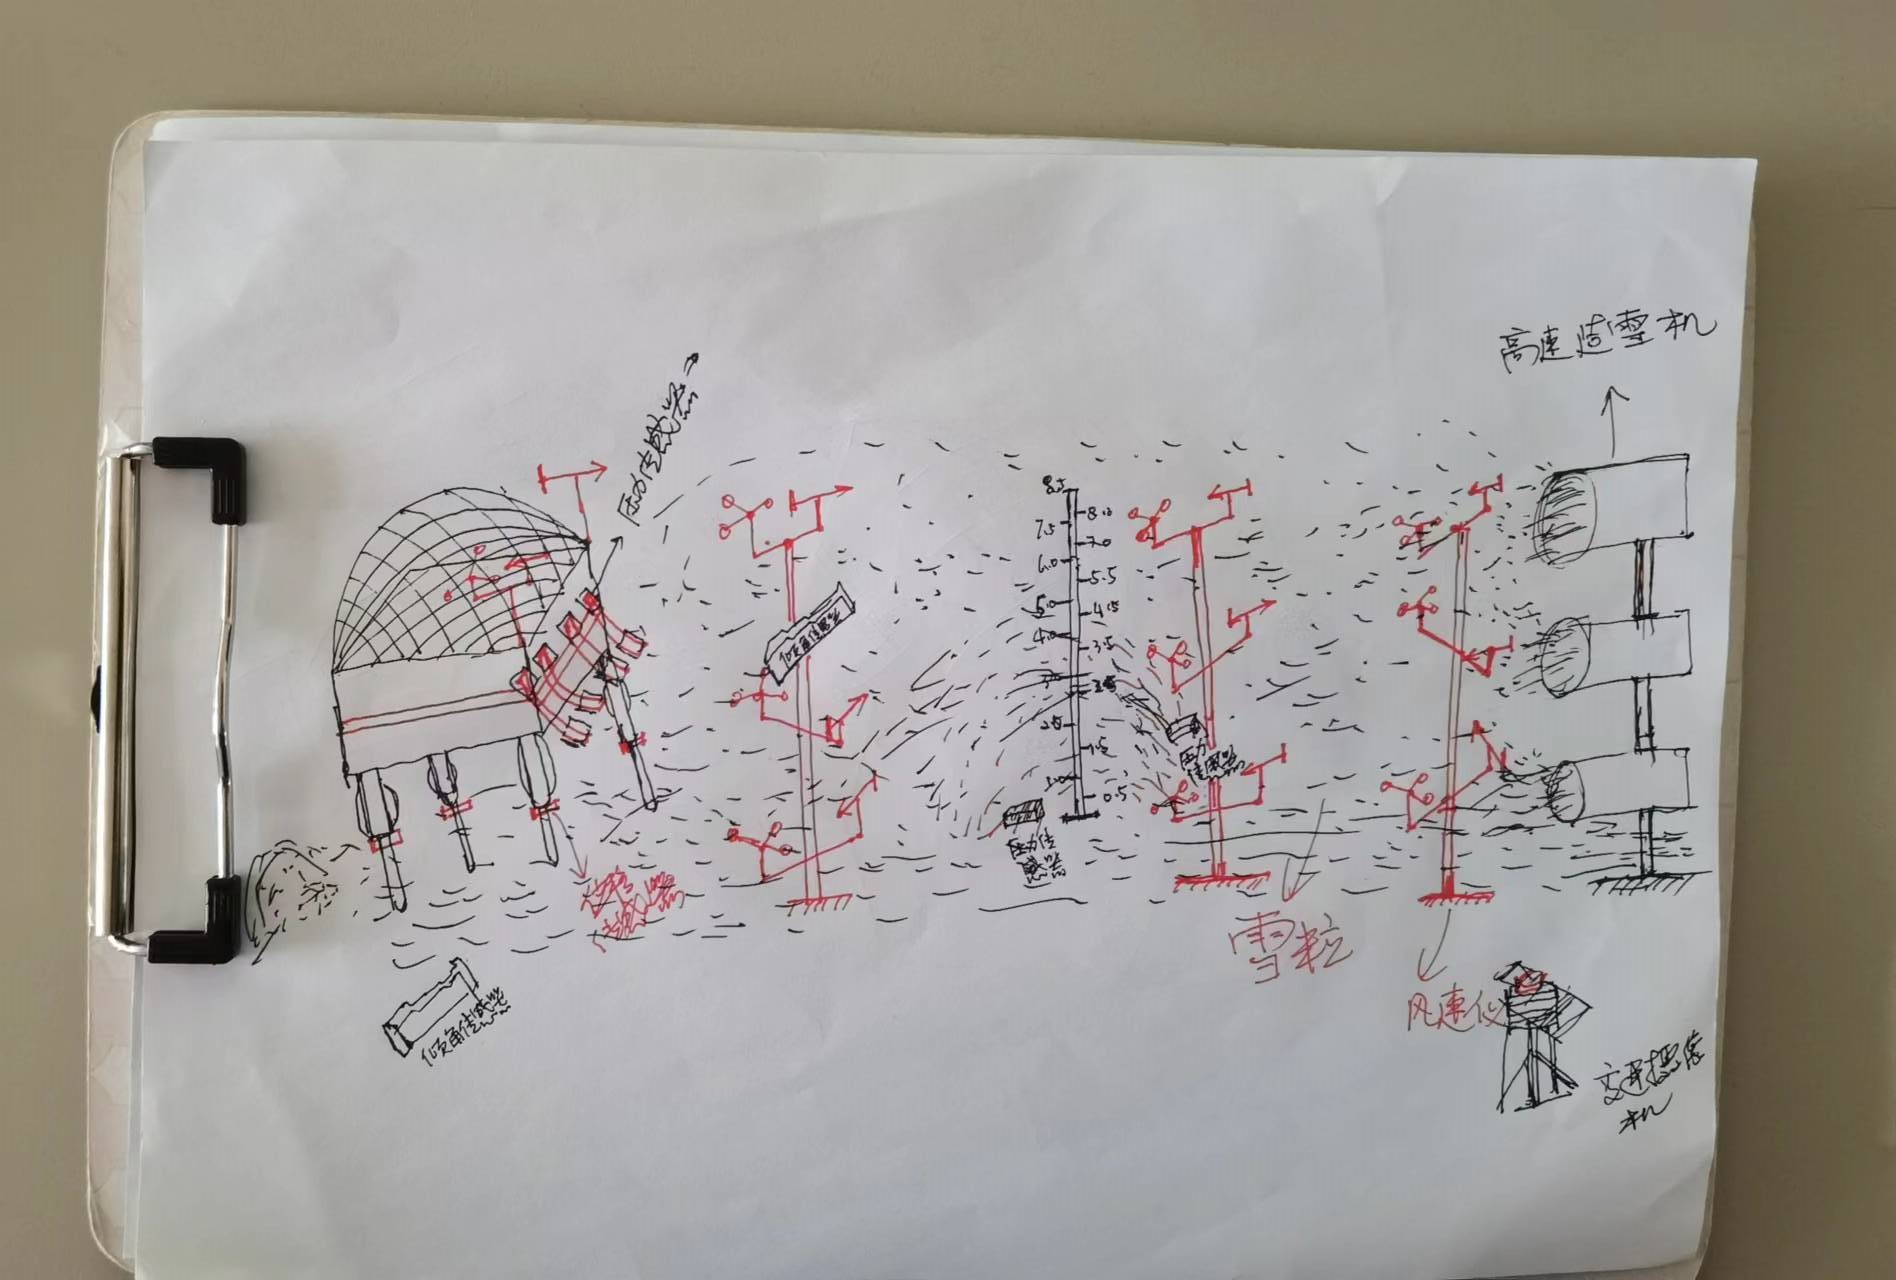 高速造雪机
压力传感器
倾角传感器
8.5
8.0
7.5
7.0
6.0
5.5
5.0
4.5
4.0
3.5
2.0
1.5
1.0
0.5
压力
传感器
压力传
感器
传感器
雪粒
风速仪
倾角传感器
机